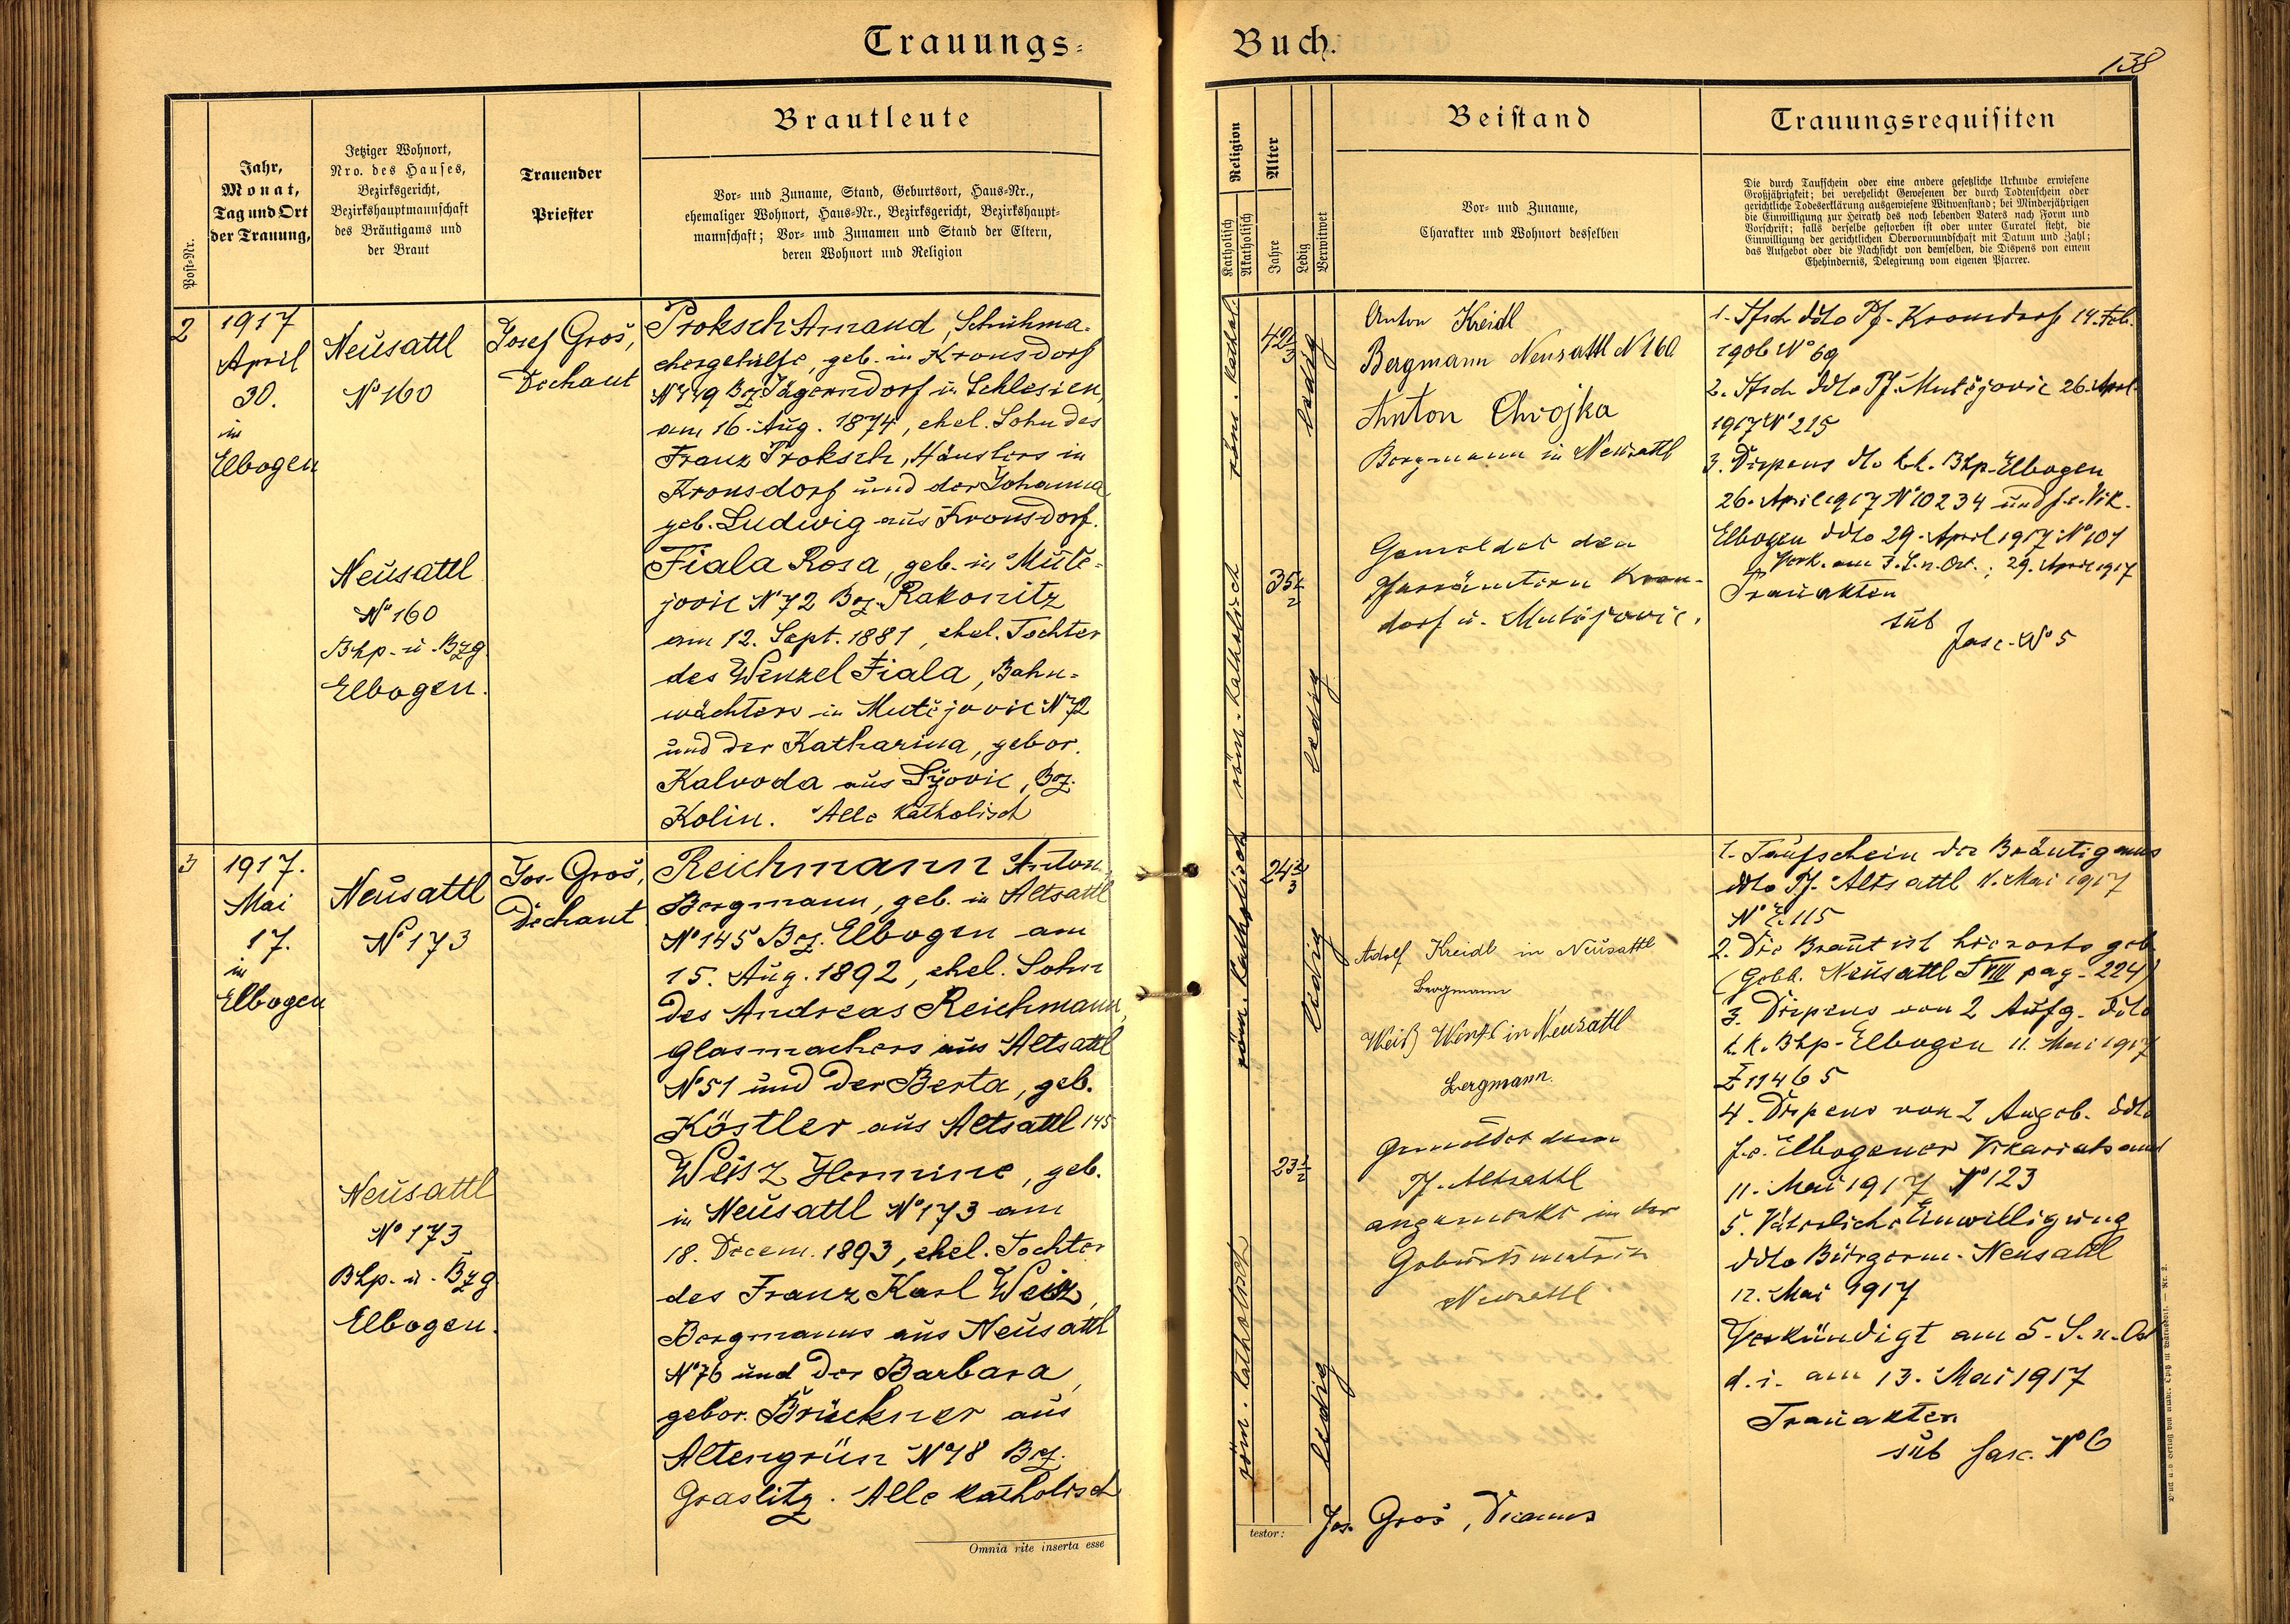 Trauungs-
Buch.
138
Post-Nr.
Jahr,
Monat,
Tag und Ort
der Trauung,
Jetziger Wohnort,
Nro. des Hauses,
Bezirksgericht,
Bezirkshauptmannschaft
des Bräutigams und
der Braut
Trauender
Priester
Brautleute
Vor- und Zuname, Stand, Geburtsort, Haus-Nr.,
ehemaliger Wohnort, Haus-Nr., Bezirksgericht, Bezirkshaupt-
mannschaft; Vor- und Zunamen und Stand der Eltern,
deren Wohnort und Religion
Religion
Katholisch
Akatholisch
Alter
Jahre
Ledig
Verwitwet
Beistand
Vor- und Zuname,
Charakter und Wohnort desselben
Trauungsrequisiten
Die durch Taufschein oder eine andere gesetzliche Urkunde erwiesene
Großjährigkeit; bei verehelicht Gewesenen der durch Todtenschein oder
gerichtliche Todeserklärung ausgewiesene Witwenstand; bei Minderjährigen
die Einwilligung zur Heirath des noch lebenden Vaters nach Form und
Vorschrift; falls derselbe gestorben ist oder unter Curatel steht, die
Einwilligung der gerichtlichen Obervormundschaft mit Datum und Zahl;
das Aufgebot oder die Nachsicht von demselben, die Dispens von einem
Ehehindernis, Delegirung vom eigenen Pfarrer.
2
1917
April
30.
in
Elbogen
Neusattl
Nº 160
Neusattl
Nº 160
Bhp. u. Bzg
Elbogen.
Josef Groš,
Dechant
Proksch Amand, Schuhma-
chergehülfe, geb. in Kronsdorf
Bez Jägerndorf in Schlesien
am 16. Aug. 1874, ehel. Sohn des
Franz Proksch, Häuslers in
Kronsdorf und der Johanna
geb. Ludwig aus Kronsdorf.
Fiala Rosa, geb. in Mutě-
jovic Nº 72 Bez. Rakonitz
am 12. Sept. 1881, ehel. Tochter
des Wenzel Fiala, Bahn-
wächters in Mutějovic Nº 72
und der Katharina, gebor.
Kalvoda aus Bez.
Kolin. Alle katholisch
röm. kathol.
röm. katholisch
42 2/3
35 1/2
ledig
ledig
Anton Kreidl
Bergmann Neusattl N 160
Anton Chvojka
Bergmann in Neusattl
Gemeldet den
Pfarrämtern Kron-
dorf u. Mutějovic.
1. Tfsch ddto Pf. Kronsdorf 14. Feb.
1906 Nº 69
2. Tfsch ddto Pf. Mutějovic 26. April
1917 Nº 215
3. Dispens dto k.k. Bhp. Elbogen
26. April 1917 Nº 10234 und f.e. Vik.
Elbogen ddto 29. April 1917 Nº 101
Verk. am 3. S. n. Ost.; 29. April 1917
Trauakten
sub
fasc. Nº 5
3
1917.
Mai
17.
in
Elbogen
Neusattl
Nº 173
Neusattl
Nº 173
Bhp. u. Bzg
Elbogen.
Jos. Groš,
Dechant
Reichmann Anton,
Bergmann, geb. in Altsattl
Nº 145 Bez. Elbogen am
15. Aug. 1892, ehel. Sohn
des Andreas Reichmann,
Glasmachers aus Altsattl
Nº 51 und der Berta, geb.
Köstler aus Altsattl 145
Weisz Hermine, geb.
in Neusattl Nº 173 am
18. Decem. 1893, ehel. Tochter
des Franz Karl Weisz,
Bergmanns aus Neusattl
Nº 76 und der Barbara,
gebor. Brückner aus
Altengrün Nº 48 Bez.
Graslitz. Alle katholisch
röm. katholisch
röm. katholisch
24 2/3
23 1/2
ledig
ledig
Adolf Kreidl in Neusattl
Bergmann
Weiß Wenzl in Neusattl
Bergmann.
Gemeldet dem
Pf. Altsattl
angemerkt in der
Geburtsmatrik
Neusattl
1. Taufschein des Bräutigams
ddto Pf. Altsattl 11. Mai 1917
Nº E. 115
2. Die Braut ist hierorts geb
(Gebb. Neusattl T VIII pag. 224)
3. Dispens von 2 Aufg. ddto
k.k. Bhp. Elbogen 11. Mai 1917
Z 11465
4. Dispens von 2 Aufgeb. ddto
f.e. Elbogener Vikariatsamt
11. Mai 1917 Nº 123
5. Väterliche Einwilligung
ddto Bürgerm. Neusattl
12. Mai 1917
Verkündigt am 5. S. n. Ost
d. i. am 13. Mai 1917
Trauakten
sub fasc. Nº 6
Omnia rite inserta esse
testor:
Jos. Groš, Decanus